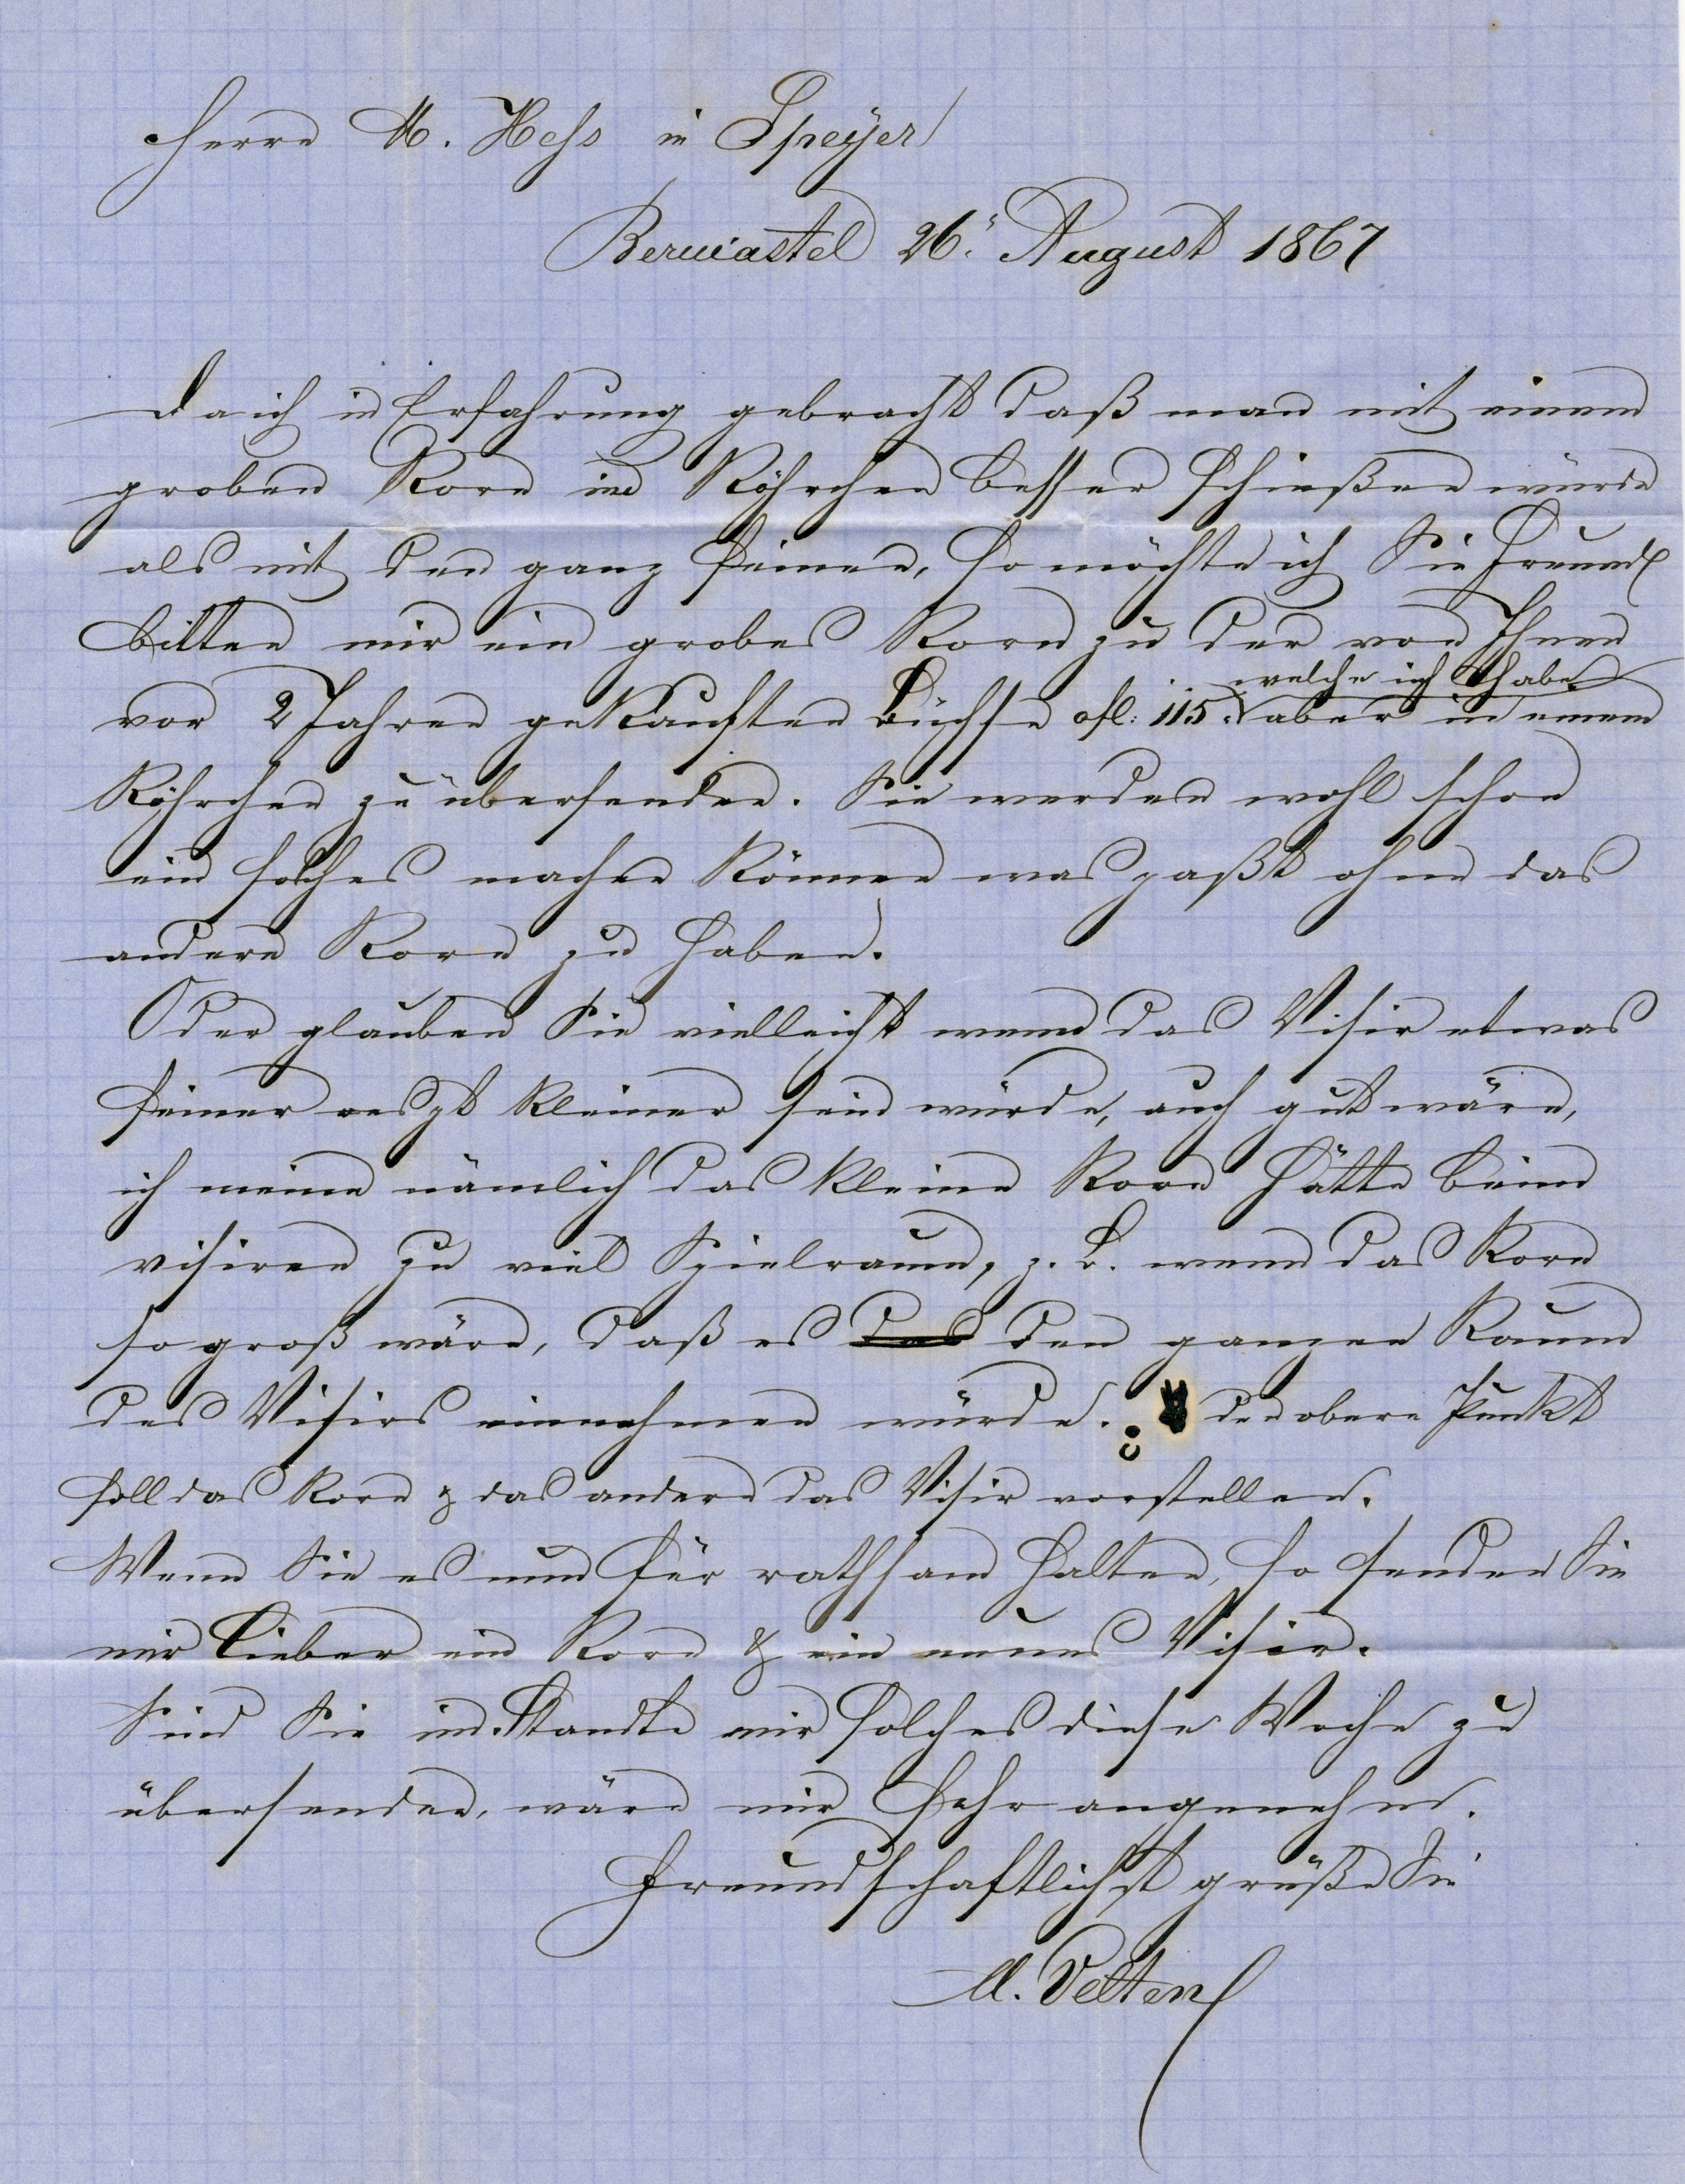 Herrn M. Hess in Speyer
Berncastel 26. August 1867
Da ich in Erfahrung gebracht daß man mit einem
groben Korn im Röhrchen besser schießen würde
als mit den ganz feinen, so möchte ich Sie freundl
bitten mir ein grobes Korn zu der von Ihnen
welche ich habe
vor 2 Jahren gekauften Büchse à fl: 115. aber in einem
Röhrchen zu übersenden. Sie werden wohl schon
ein solches machen können was paßt ohne das
andere Korn zu haben.
Oder glauben Sie vielleicht wenn das Visir etwas
feiner respt kleiner sein würde, auch gut wäre,
ich meine nämlich das kleine Korn hätte beim
visiren zu viel Spielraum, z. B. wenn das Korn
so groß wäre, daß es das den ganzen Raum
des Visirs einnehmen würde. der obere Punkt
soll das Korn & das andere das Visir vorstellen.
Wenn Sie es nun für rathsam halten, so senden Sie
mir lieber ein Korn & ein neues Visir.
Sind Sie im Standte mir solches diese Woche zu
übersenden, wäre mir sehr angenehm.
Freundschaftlichst grüße Sie
M. Velten